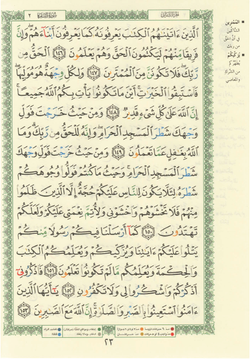 الَّذِينَ ءَاتَيْنَٰهُمُ الْكِتَٰبَ يَعْرِفُونَهُۥ كَمَا يَعْرِفُونَ أَبْنَآءَهُمْ وَإِنَّ
فَرِيقًا مِّنْهُمْ لَيَكْتُمُونَ الْحَقَّ وَهُمْ يَعْلَمُونَ ١٤٦ الْحَقُّ مِن
رَّبِّكَ فَلَا تَكُونَنَّ مِنَ الْمُمْتَرِينَ ١٤٧ وَلِكُلٍّ وِجْهَةٌ هُوَ مُوَلِّيهَا
فَاسْتَبِقُوا الْخَيْرَٰتِ أَيْنَ مَا تَكُونُوا يَأْتِ بِكُمُ اللَّهُ جَمِيعًا
إِنَّ اللَّهَ عَلَىٰ كُلِّ شَىْءٍ قَدِيرٌ ١٤٨ وَمِنْ حَيْثُ خَرَجْتَ فَوَلِّ
وَجْهَكَ شَطْرَ الْمَسْجِدِ الْحَرَامِ وَإِنَّهُۥ لَلْحَقُّ مِن رَّبِّكَ وَمَا
اللَّهُ بِغَٰفِلٍ عَمَّا تَعْمَلُونَ ١٤٩ وَمِنْ حَيْثُ خَرَجْتَ فَوَلِّ
وَجْهَكَ شَطْرَ الْمَسْجِدِ الْحَرَامِ وَحَيْثُ مَا كُنتُمْ فَوَلُّوا وُجُوهَكُمْ
شَطْرَهُۥ لِئَلَّا يَكُونَ لِلنَّاسِ عَلَيْكُمْ حُجَّةٌ إِلَّا الَّذِينَ ظَلَمُوا
مِنْهُمْ فَلَا تَخْشَوْهُمْ وَاخْشَوْنِى وَلِأُتِمَّ نِعْمَتِى عَلَيْكُمْ وَلَعَلَّكُمْ
تَهْتَدُونَ ١٥٠ كَمَآ أَرْسَلْنَا فِيكُمْ رَسُولًا مِّنكُمْ
يَتْلُوا عَلَيْكُمْ ءَايَٰتِنَا وَيُزَكِّيكُمْ وَيُعَلِّمُكُمُ الْكِتَٰبَ
وَالْحِكْمَةَ وَيُعَلِّمُكُم مَّا لَمْ تَكُونُوا تَعْلَمُونَ ١٥١ فَاذْكُرُونِىٓ
أَذْكُرْكُمْ وَاشْكُرُوا لِى وَلَا تَكْفُرُونِ ١٥٢ يَٰٓأَيُّهَا الَّذِينَ
ءَامَنُوا اسْتَعِينُوا بِالصَّبْرِ وَالصَّلَوٰةِ إِنَّ اللَّهَ مَعَ الصَّٰبِرِينَ ١٥٣
٢٣